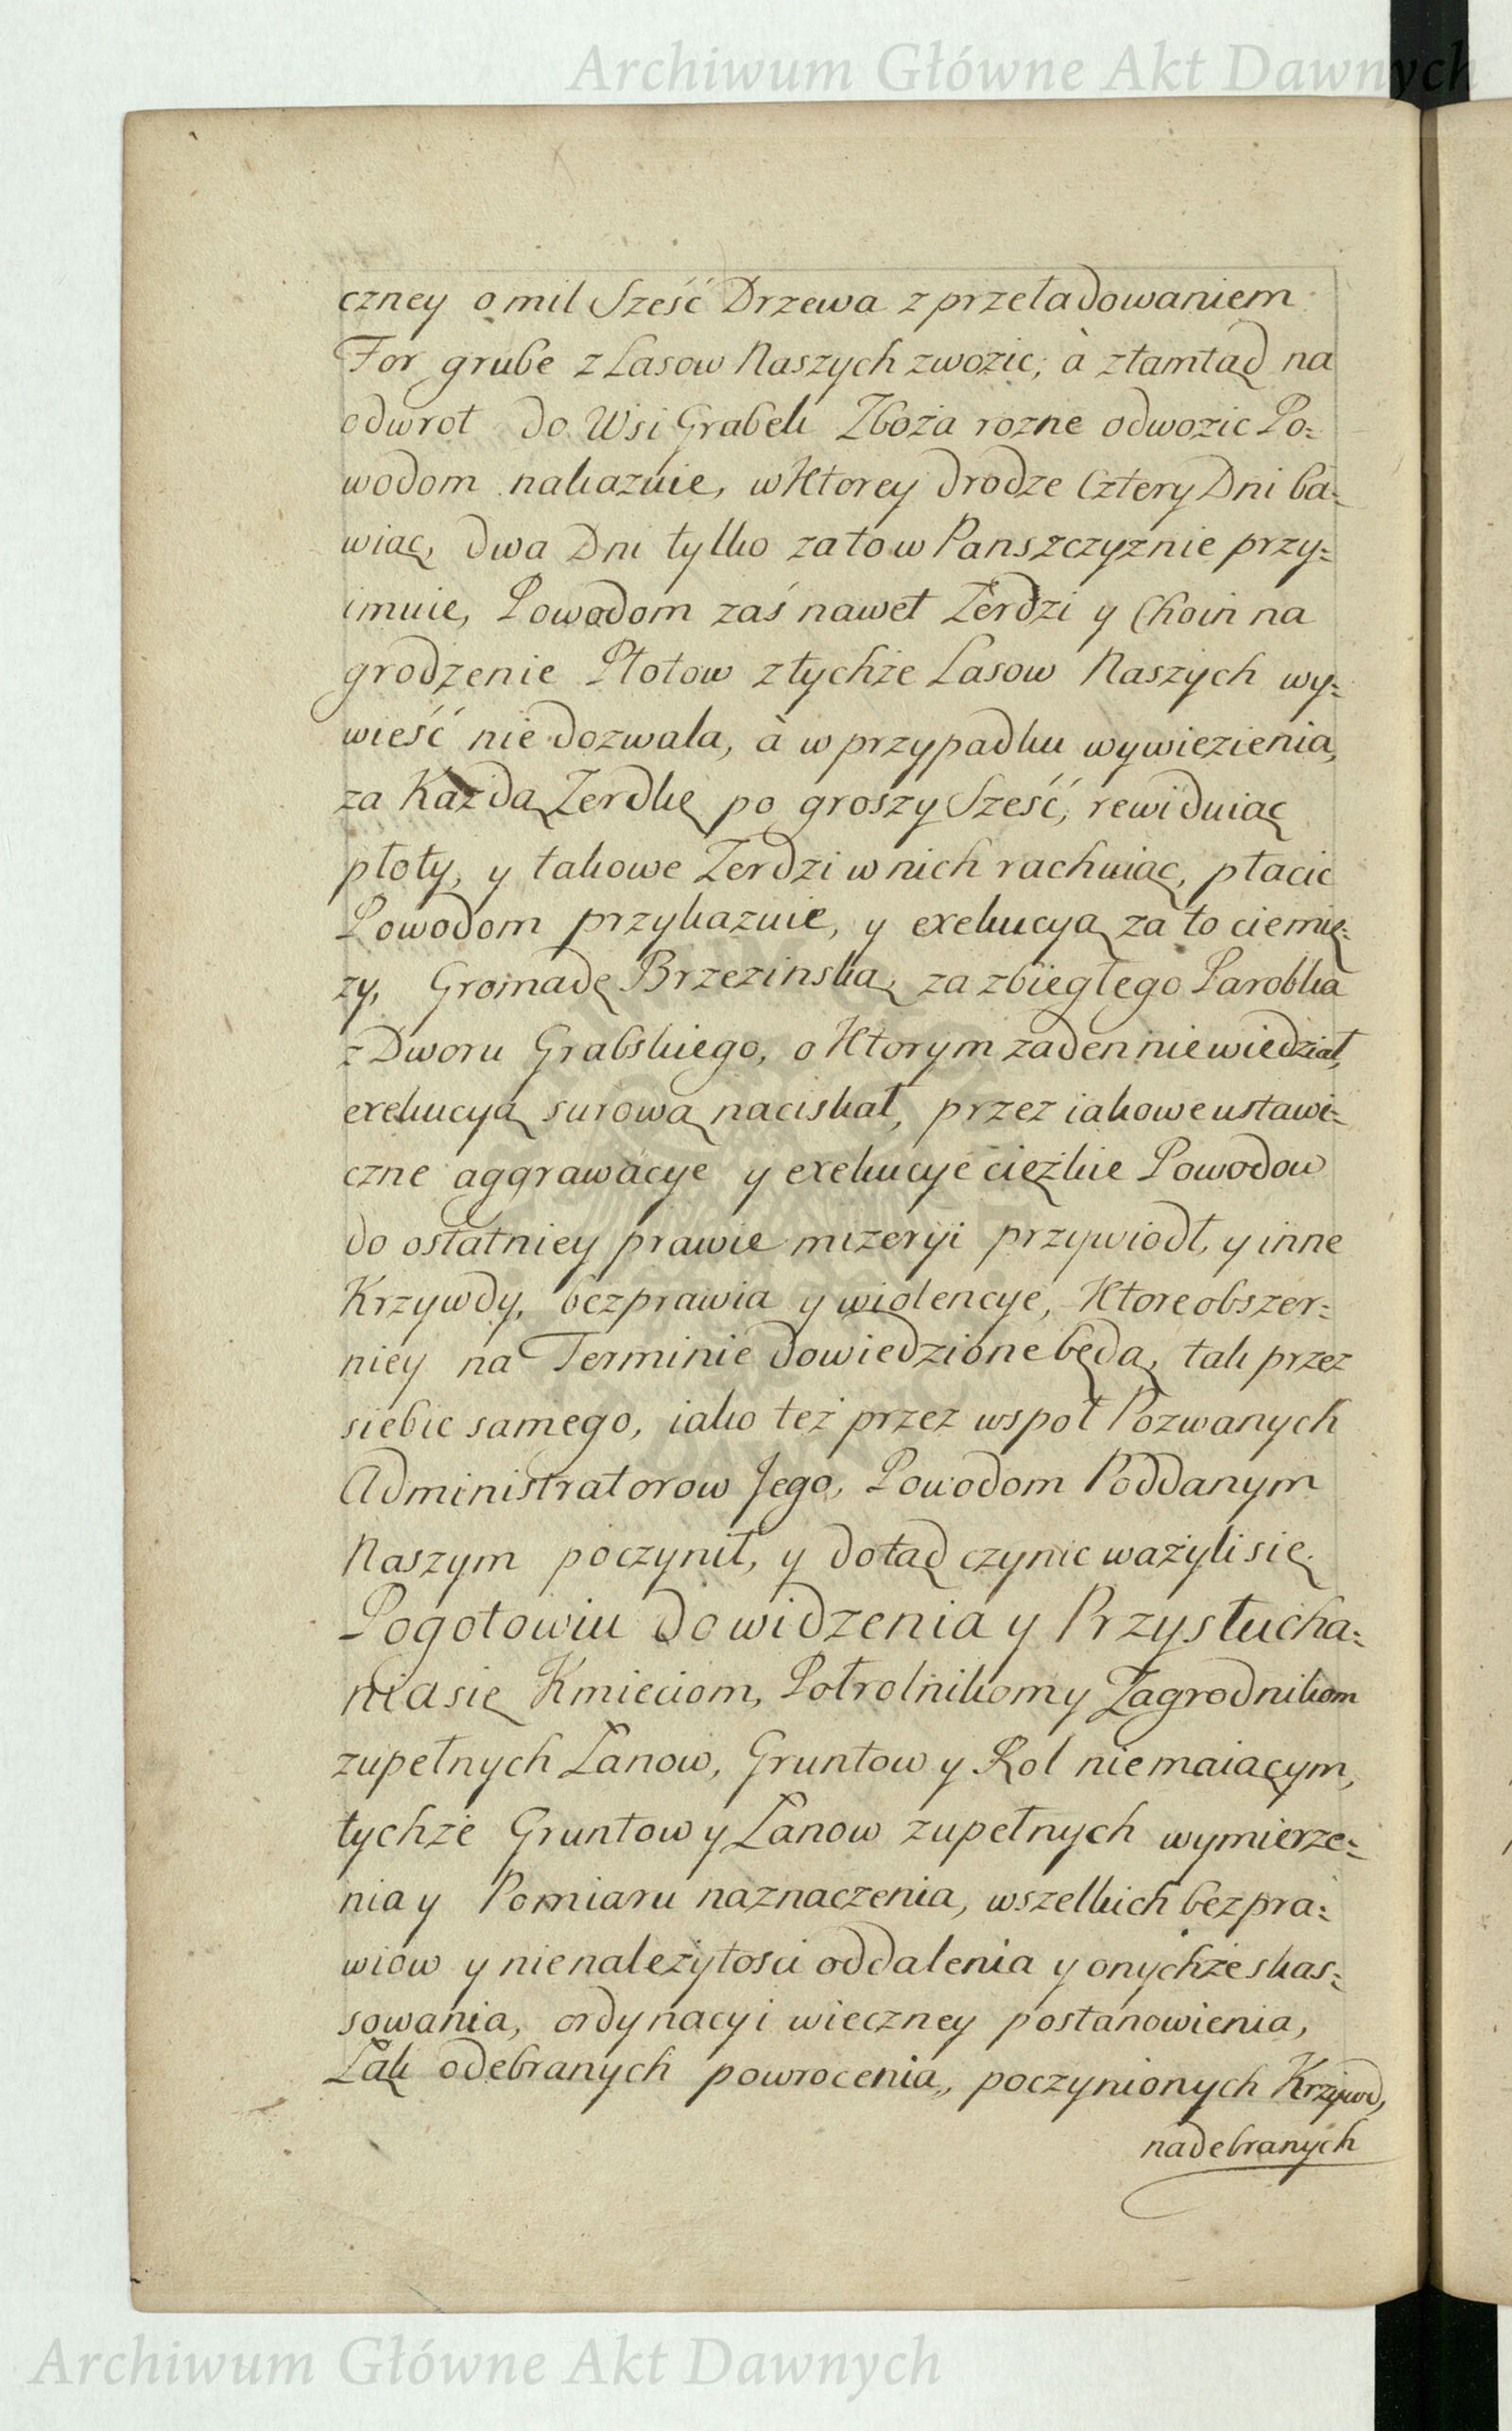 Archiwum Główne Akt Dawnych
czney o mil Sześć Drzewa z przeładowaniem
For grube z Lasow Naszych zwozic, à ztamtąd na
odwrot do Wsi Grabek Zboża rozne odwozic Po=
wodom nakazuie, w Ktorey drodze Cztery Dni ba=
wiąc, dwa Dni tylko za to w Panszczyznie przy=
imuie, Powodom zaś nawet Żerdzi y Choin na
grodzenie Płotow z tychże Lasow Naszych wy=
wieść nie dozwala, à w przypadku wywiezienia,
za Każdą Żerdkę po groszy Sześć, rewiduiąc
płoty, y takowe Żerdzi w nich rachuiąc, płacic
Powodom przykazuie, y exekucyą za to ciemię=
zy, Gromadę Brzezinską, za zbiegłego Parobka
z Dworu Grabskiego, o Ktorym żaden nie wiedział,
exekucyą surową naciskał, przez iakowe ustawi=
czne aggrawacye y exekucye ciężkie Powodow
do ostatniey prawie mizeryi przywiodł, y inne
Krzywdy, bezprawia y wiolencye, Ktore obszer=
niey na Terminie dowiedzione będą, tak przez
siebie samego, iako też przez wspoł Pozwanych
Administratorow Jego, Powodom Poddanym
Naszym poczynił, y dotąd czynic ważyli się.
Pogotowiu do widzenia y Przysłucha=
nia się Kmieciom, Połrolnikom y Zagrodnikom
zupełnych Łanow, Gruntow y Rol nie maiącym,
tychże Gruntow y Łanow zupełnych wymierze=
nia y Pomiaru naznaczenia, wszelkich bezpra=
wiow y nienależytosci oddalenia y onychże skas=
sowania, ordynacyi wieczney postanowienia,
Łąk odebranych powrocenia, poczynionych Krzywd,
nadebranych
Archiwum Główne Akt Dawnych